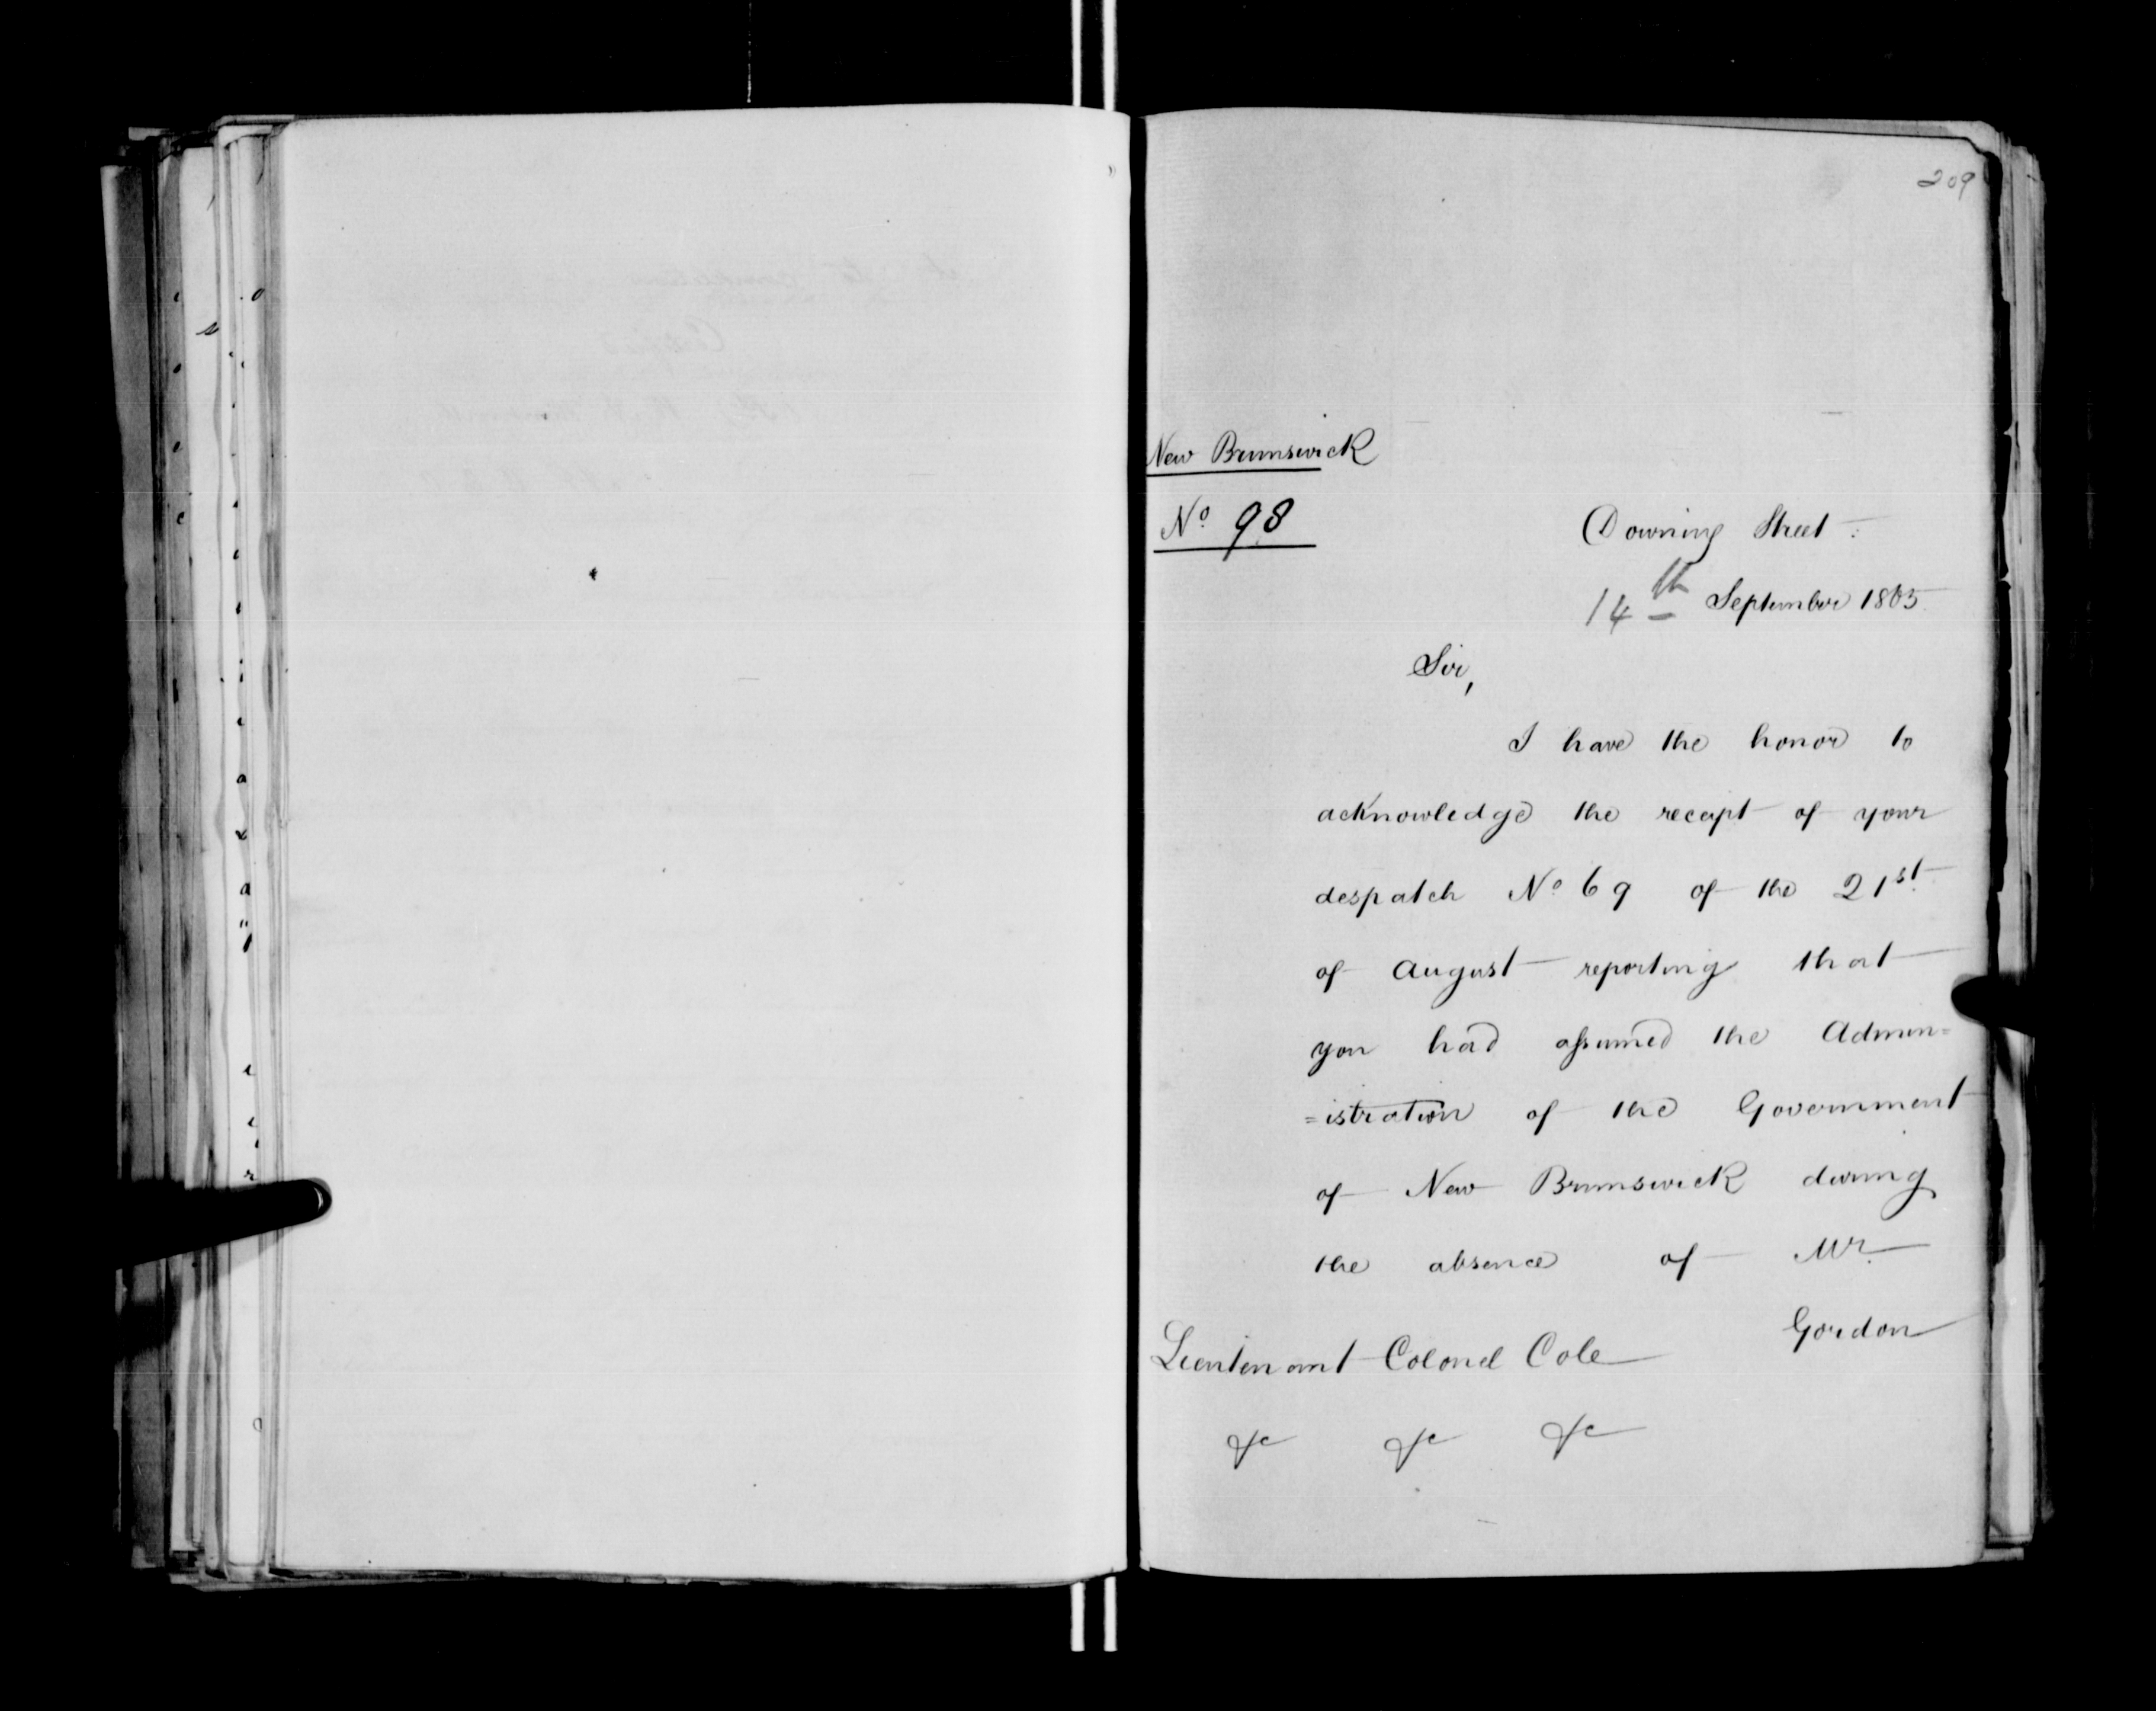 209
New Brunswick
Nº 98
Downing Street
14th September 1865
Sir,
I have the honor to
acknowledge the receipt of your
despatch Nº 69 of the 21st
of August reporting that
you had assumed the Admin=
=istration of the Government
of New Brunswick during
the absence of Mr.
Gordon
Lieutenant Colonel Cole
&c &c &c